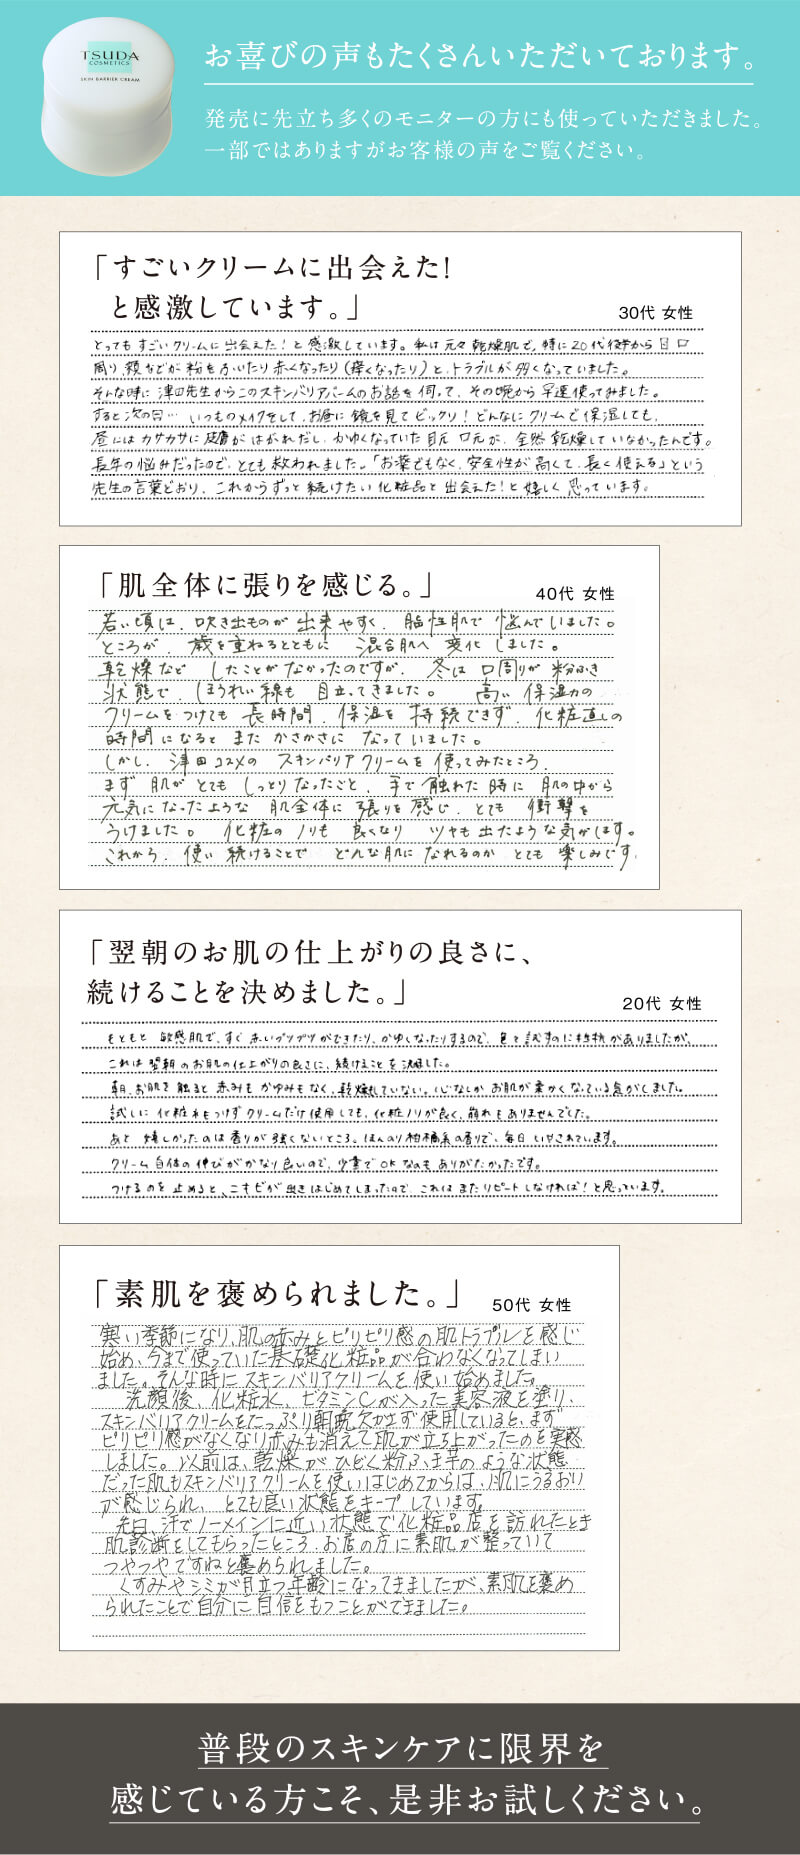 TSUDA
COSMETICS
SKIN BARRIER CREAM
お喜びの声もたくさんいただいております。
発売に先立ち多くのモニターの方にも使っていただきました。
一部ではありますがお客様の声をご覧ください。
「すごいクリームに出会えた!
と感激しています。」
30代 女性
とってもすごいクリームに出会えた!と感激しています。私は元々乾燥肌で、特に20代後半から目口
周り、頬などが粉をふいたり赤くなったり(痒くなったり)と、トラブルが多くなっていました。
そんな時に津田先生からこのスキンバリアバームのお話を伺って、その晩から早速使ってみました。
すると次の日… いつものメイクをして、お昼に鏡を見てビックリ!どんなにクリームで保湿しても、
昼にはカサカサに皮膚がはがれだし、かゆくなっていた目元口元が、全然乾燥していなかったんです。
長年の悩みだったので、とても救われました。「お薬でもなく、安全性が高くて、長く使える」という
先生の言葉どおり、これからずっと続けたい化粧品と出会えた!と嬉しく思っています。
「肌全体に張りを感じる。」
40代 女性
若い頃は、吹き出ものが出来やすく、脂性肌で悩んでいました。
ところが、歳を重ねるとともに 混合肌へ変化しました。
乾燥など したことがなかったのですが、冬は口周りが粉ふき
状態で、ほうれい線も目立ってきました。 高い保湿力の
クリームをつけても長時間、保湿を持続できず、化粧直しの
時間になるとまたかさかさになっていました。
しかし、津田コスメのスキンバリアクリームを使ってみたところ、
まず肌がとてもしっとりなったこと、手で触れた時に肌の中から
元気になったような 肌全体に張りを感じ、とても衝撃を
うけました。化粧のノリも良くなり ツヤも出たような気がします。
これから、使い続けることで どんな肌になれるのかとても楽しみです。
「翌朝のお肌の仕上がりの良さに、
続けることを決めました。」
20代 女性
もともと敏感肌で、すぐ赤いブツブツができたり、かゆくなったりするので、色々試すのに抵抗がありましたが、
これは翌朝のお肌の仕上がりの良さに、続けることを決めました。
朝、お肌を触ると赤みもかゆみもなく、乾燥していない。心なしかお肌が柔かくなっている気がしました。
試しに化粧水もつけずクリームだけ使用しても、化粧ノリが良く、崩れもありませんでした。
あと嬉しかったのは香りが強くないところ。ほんのり柑橘系の香りで、毎日いやされています。
クリーム自体の伸びがかなり良いので、少量でOKなのもありがたかったです。
つけるのを止めると、ニキビが出きはじめてしまったので、これはまたリピートしなければ!と思っています。
「素肌を褒められました。」
50代 女性
寒い季節になり、肌の赤みとピリピリ感の肌トラブルを感じ
始め、今まで使っていた基礎化粧品が合わなくなってしまい
ました。そんな時にスキンバリアクリームを使い始めました。
洗顔後、化粧水、ビタミンCが入った美容液を塗り、
スキンバリアクリームをたっぷり朝晩欠かさず使用していると、まず
ピリピリ感がなくなり赤みも消えて肌が立ち上がったのを実感
しました。以前は、乾燥がひどく粉ふきイモのような状態
だった肌もスキンバリアクリームを使いはじめてからは、肌にうるおい
が感じられ、とても良い状態をキープしています。
先日、汗でノーメインに近い状態で化粧品店を訪れたとき
肌診断をしてもらったところ、お店の方に素肌が整っていて
つやつやですねと褒められました。
くすみやシミが目立つ年齢になってきましたが、素肌を褒め
られたことで自分に自信をもつことができました。
普段のスキンケアに限界を
感じている方こそ、是非お試しください。